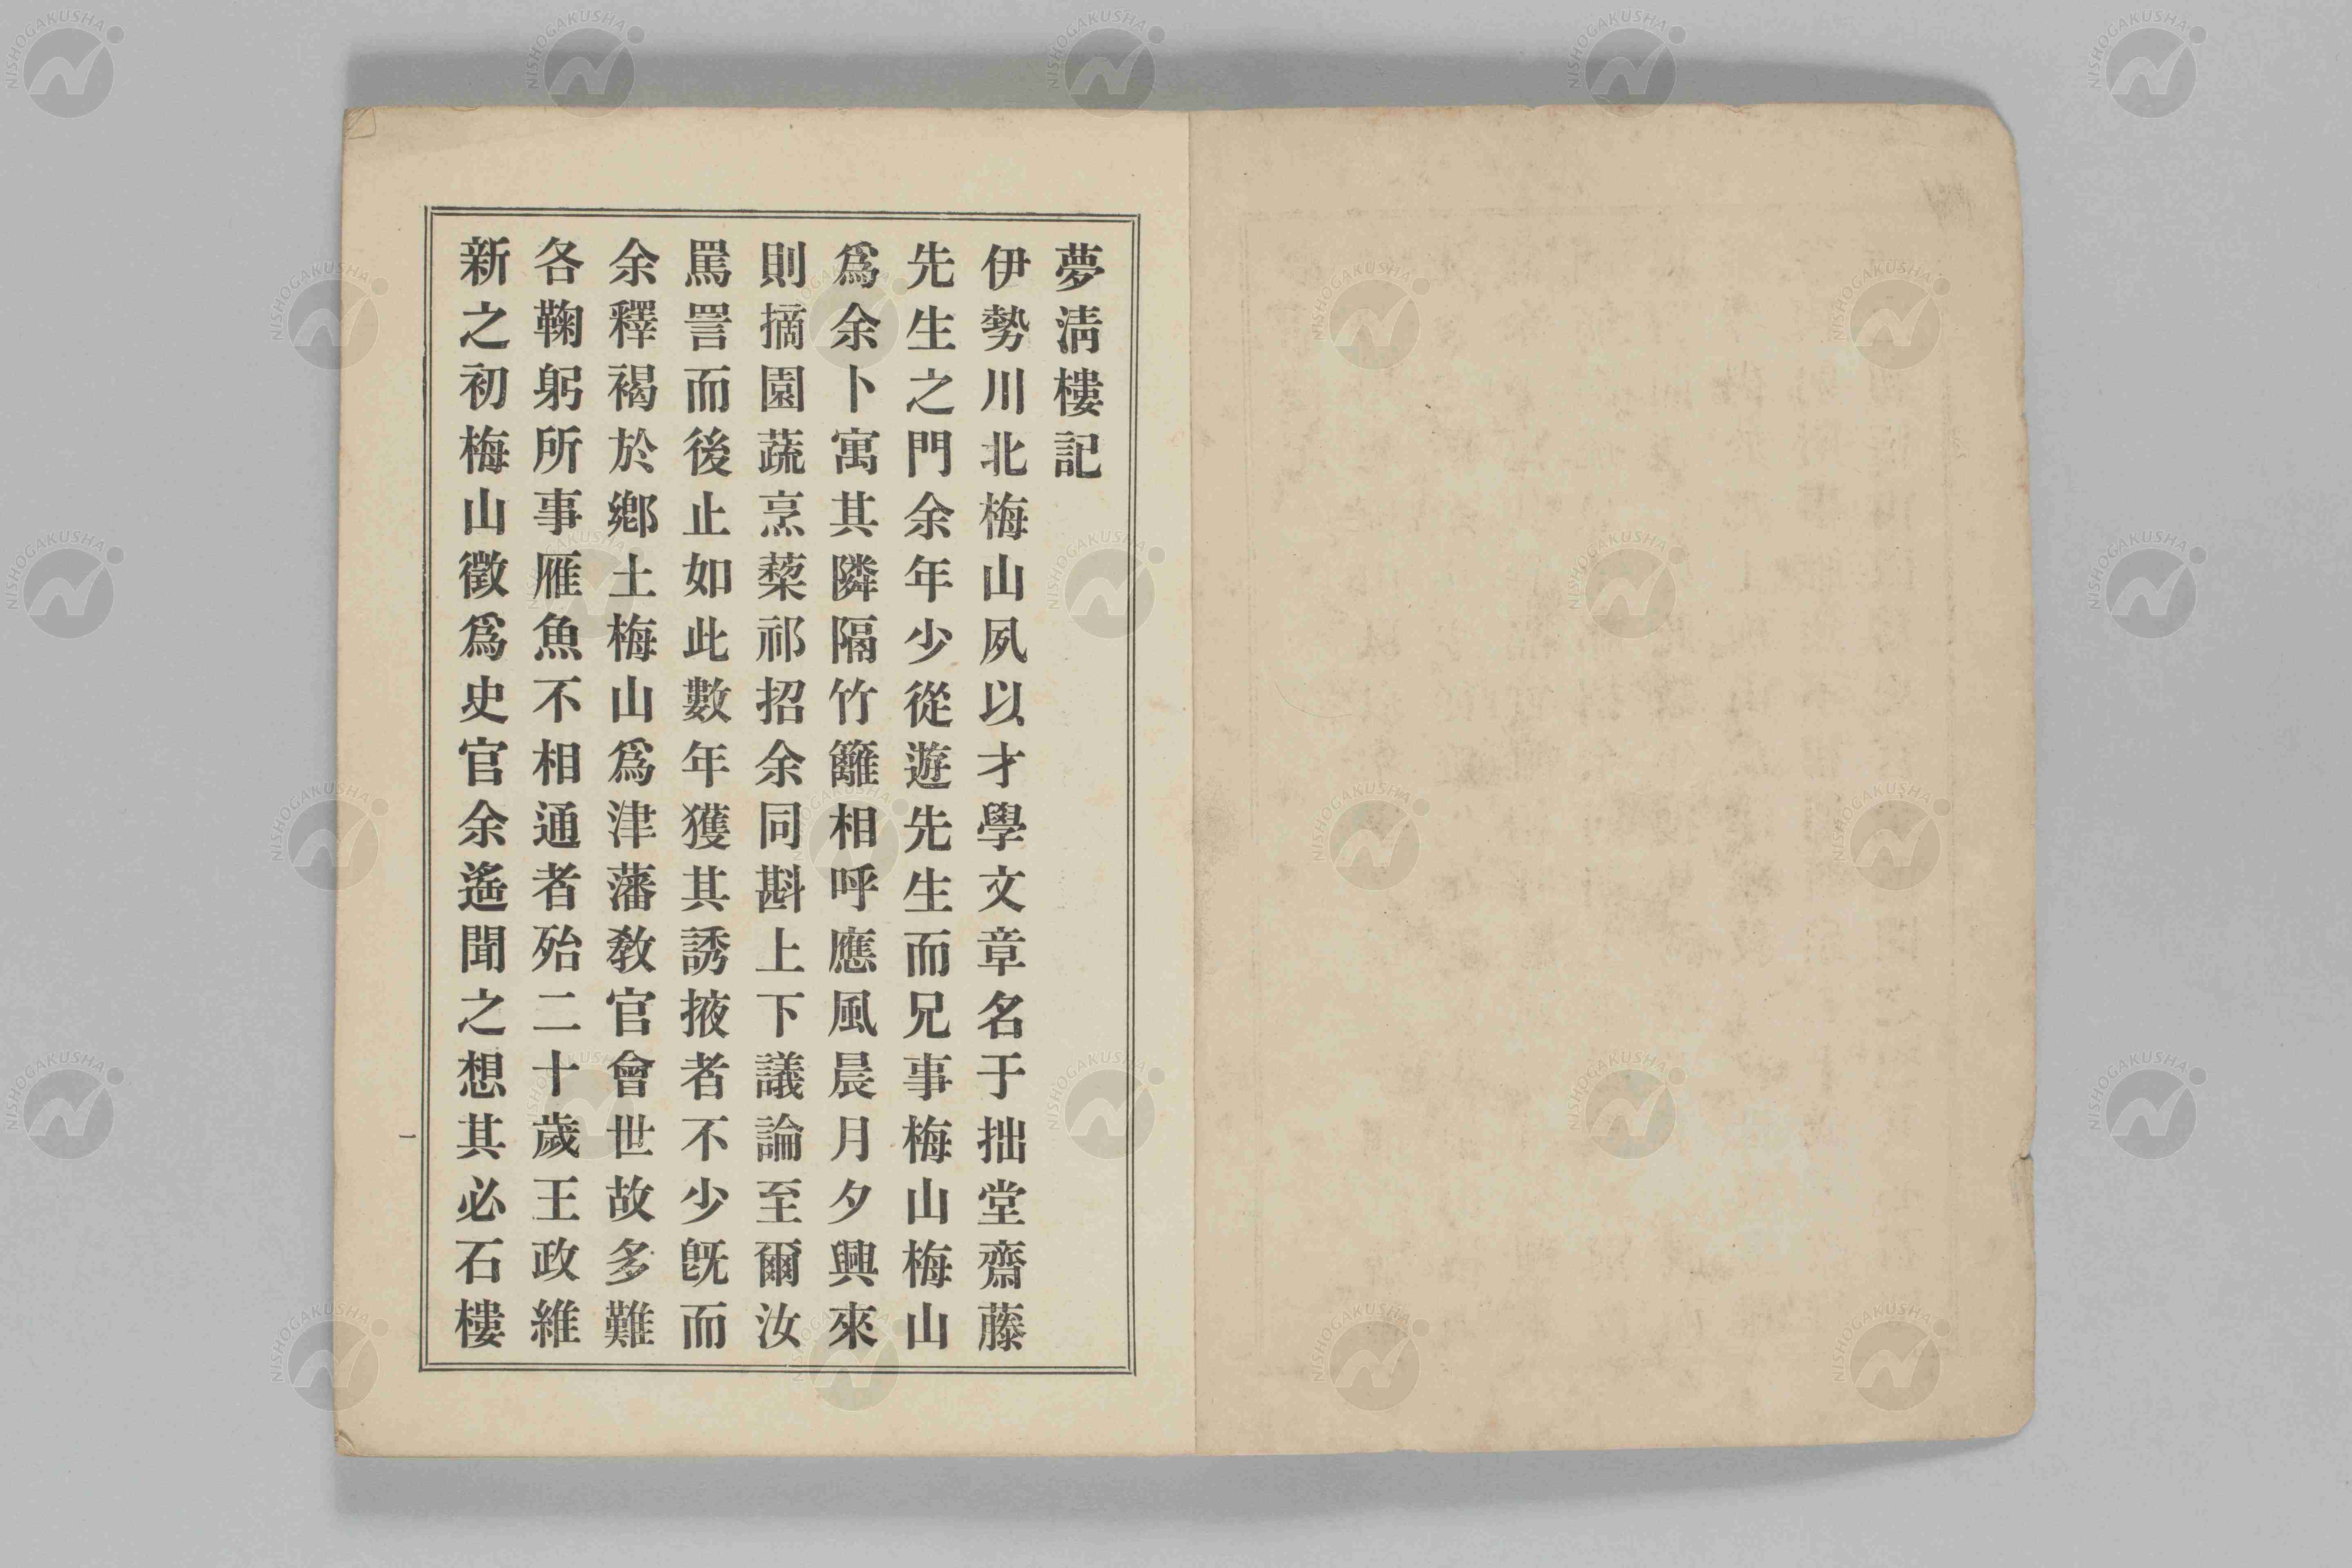 夢淸樓記
伊勢川北梅山夙以才學文章名于拙堂齋藤
先生之門余年少從遊先生而兄事梅山梅山
爲余卜寓其隣隔竹籬相呼應風晨月夕興來
則摘園蔬烹蔾祁招余同斟上下議論至爾汝
罵詈而後止如此數年獲其誘掖者不少旣而
余釋褐於鄕土梅山爲津藩敎官會世故多難
各鞠躬所事雁魚不相通者殆二十歲王政維
新之初梅山徵爲史官余遙聞之想其必石樓
一
NISHOGAKUSHA